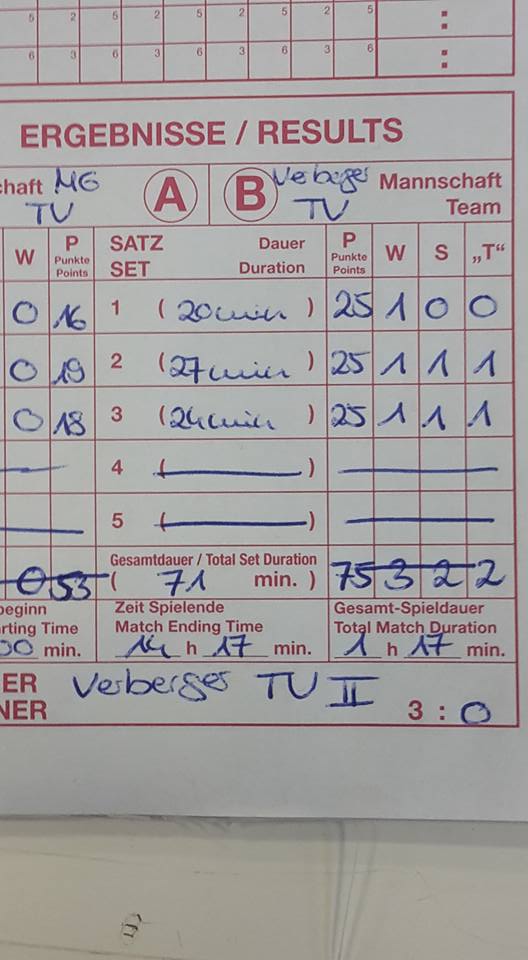 5 2 5 2 5 2 5 2 5 :
6 3 6 3 6 3 6 3 6 :
ERGEBNISSE / RESULTS
haft MG A B Mannschaft
TV TV Team
W P Punkte Points SATZ SET Dauer Duration P Punkte Points W S „T"
0 16 1 ( 20min ) 25 1 0 0
0 19 2 ( 27min ) 25 1 1 1
0 18 3 ( 24min ) 25 1 1 1
4 ( )
5 ( )
Gesamtdauer / Total Set Duration
0 53 ( 71 min. ) 75 3 2 2
beginn Zeit Spielende Gesamt-Spieldauer
rting Time Match Ending Time Total Match Duration
00 min. 14 h 17 min. 1 h 17 min.
ER Verberger TV II
NER 3 : 0